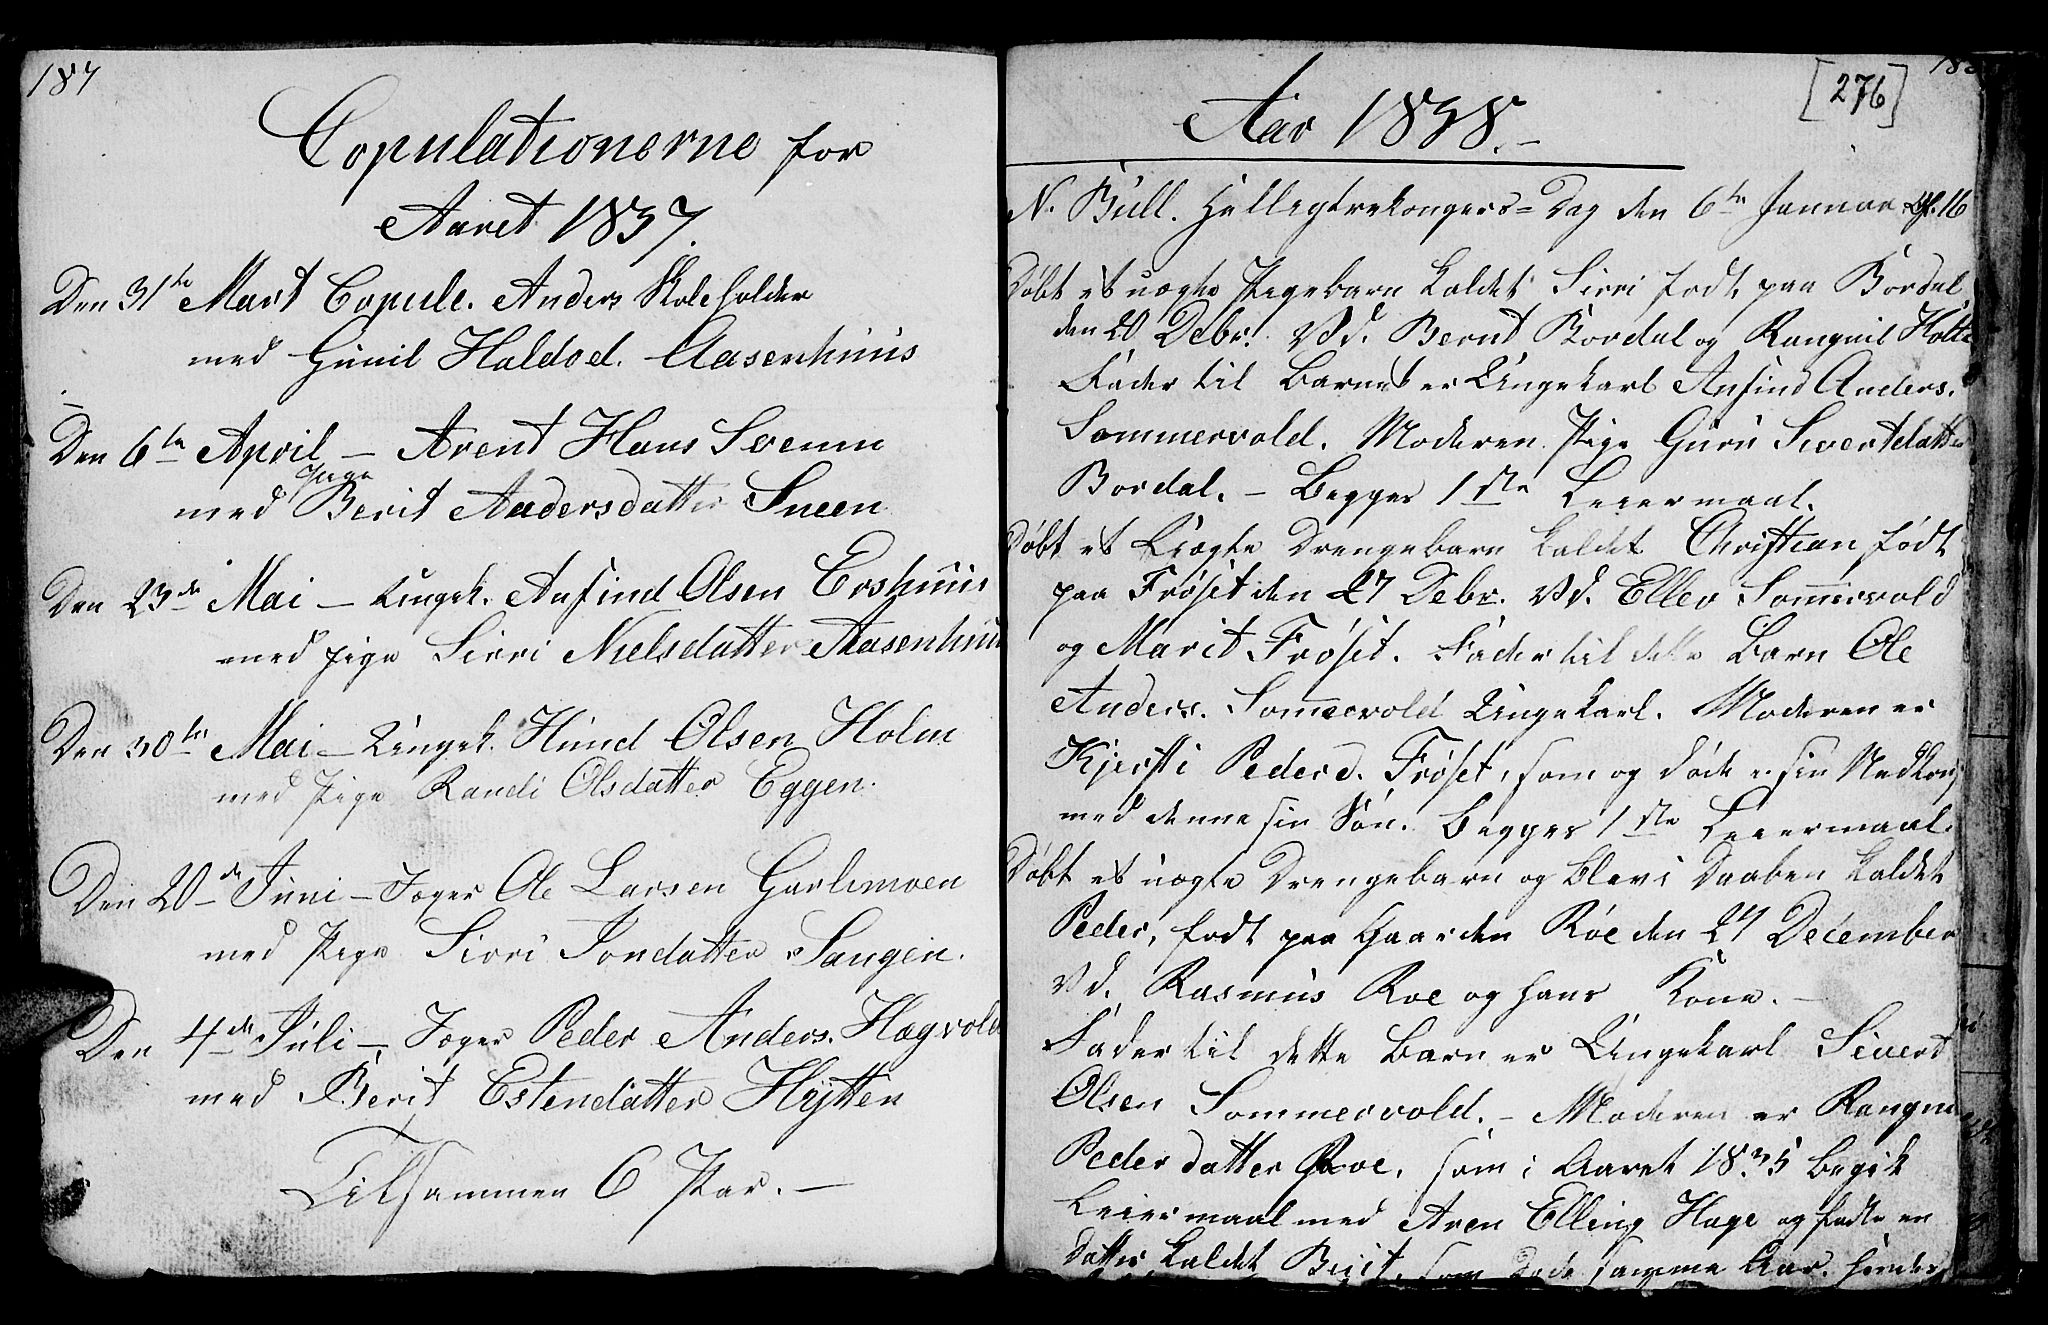 187
Copulationerne for
Aaret 1837.
Den 31te Mart Copule. Anders Skoleholder
med Gunil Haldod. Aasenhuus
Den 6te April – Arent Hans Svenn
Pige
med Berit Andersdatter Sneen
Den 23de Mai – Ungk. Anfind Olsen Ershuus
med pige Sirri Nielsdatter Aasenhuus
Den 30te Mai – Ungk. Hund Olsen Holm
med Pige Randi Olsdatter Eggen.
Den 20de Juni – Jæger Ole Larsen Garlimoen
med Pige Sirri Jondatter Saugen.
Den 4de Juli –, Jæger Peder Anders. Hægvold
med Berit Estendatter Hytten
Tilsammen 6 Par. –
[276]
Aar 1838. –
N. Bull. Helligtrekongers-Dag den 6te Januar 16
Døbt et uægte Pigebarn kaldet Sirri født paa Bordal
den 20 Debr. Vd. Bernt Bordal og Rangnil Holte
Fader til Barnet er Ungekarl Anfind Anders.
Sommervold. Moderen Pige Guru Sivertdatter
Bordal. – Begges 1ste Leiermaal.
Døbt et Uægte Drengebarn kaldet Christian, født
paa Frøset den 27 Debr. Vd. Eller Sommervold
og Marit Frøset. Fader til dette Barn Ole
Anders. Sommervold Ungekarl. Moderen er
Kjersti Pederd. Frøset, som og døde i sin Nedkoms
med denne sin Søn. Begges 1ste Leiermaal.
Døbt et uægte Drengebarn og blev i Daaben kaldet
Peder, født paa Gaarden Røe den 27 December
Vd. Rasmus Roe og hans Kone. –
Fader til dette Barn er Ungekarl Sivert
Olsen Sommervold. – Moderen er Rangni
Pedersdatter Roe, som i Aaret 1835 begik
Leiermaal med Aren Elling Hage og fødte en
Datter kaldet Berit, som døde samme Aar. hendes